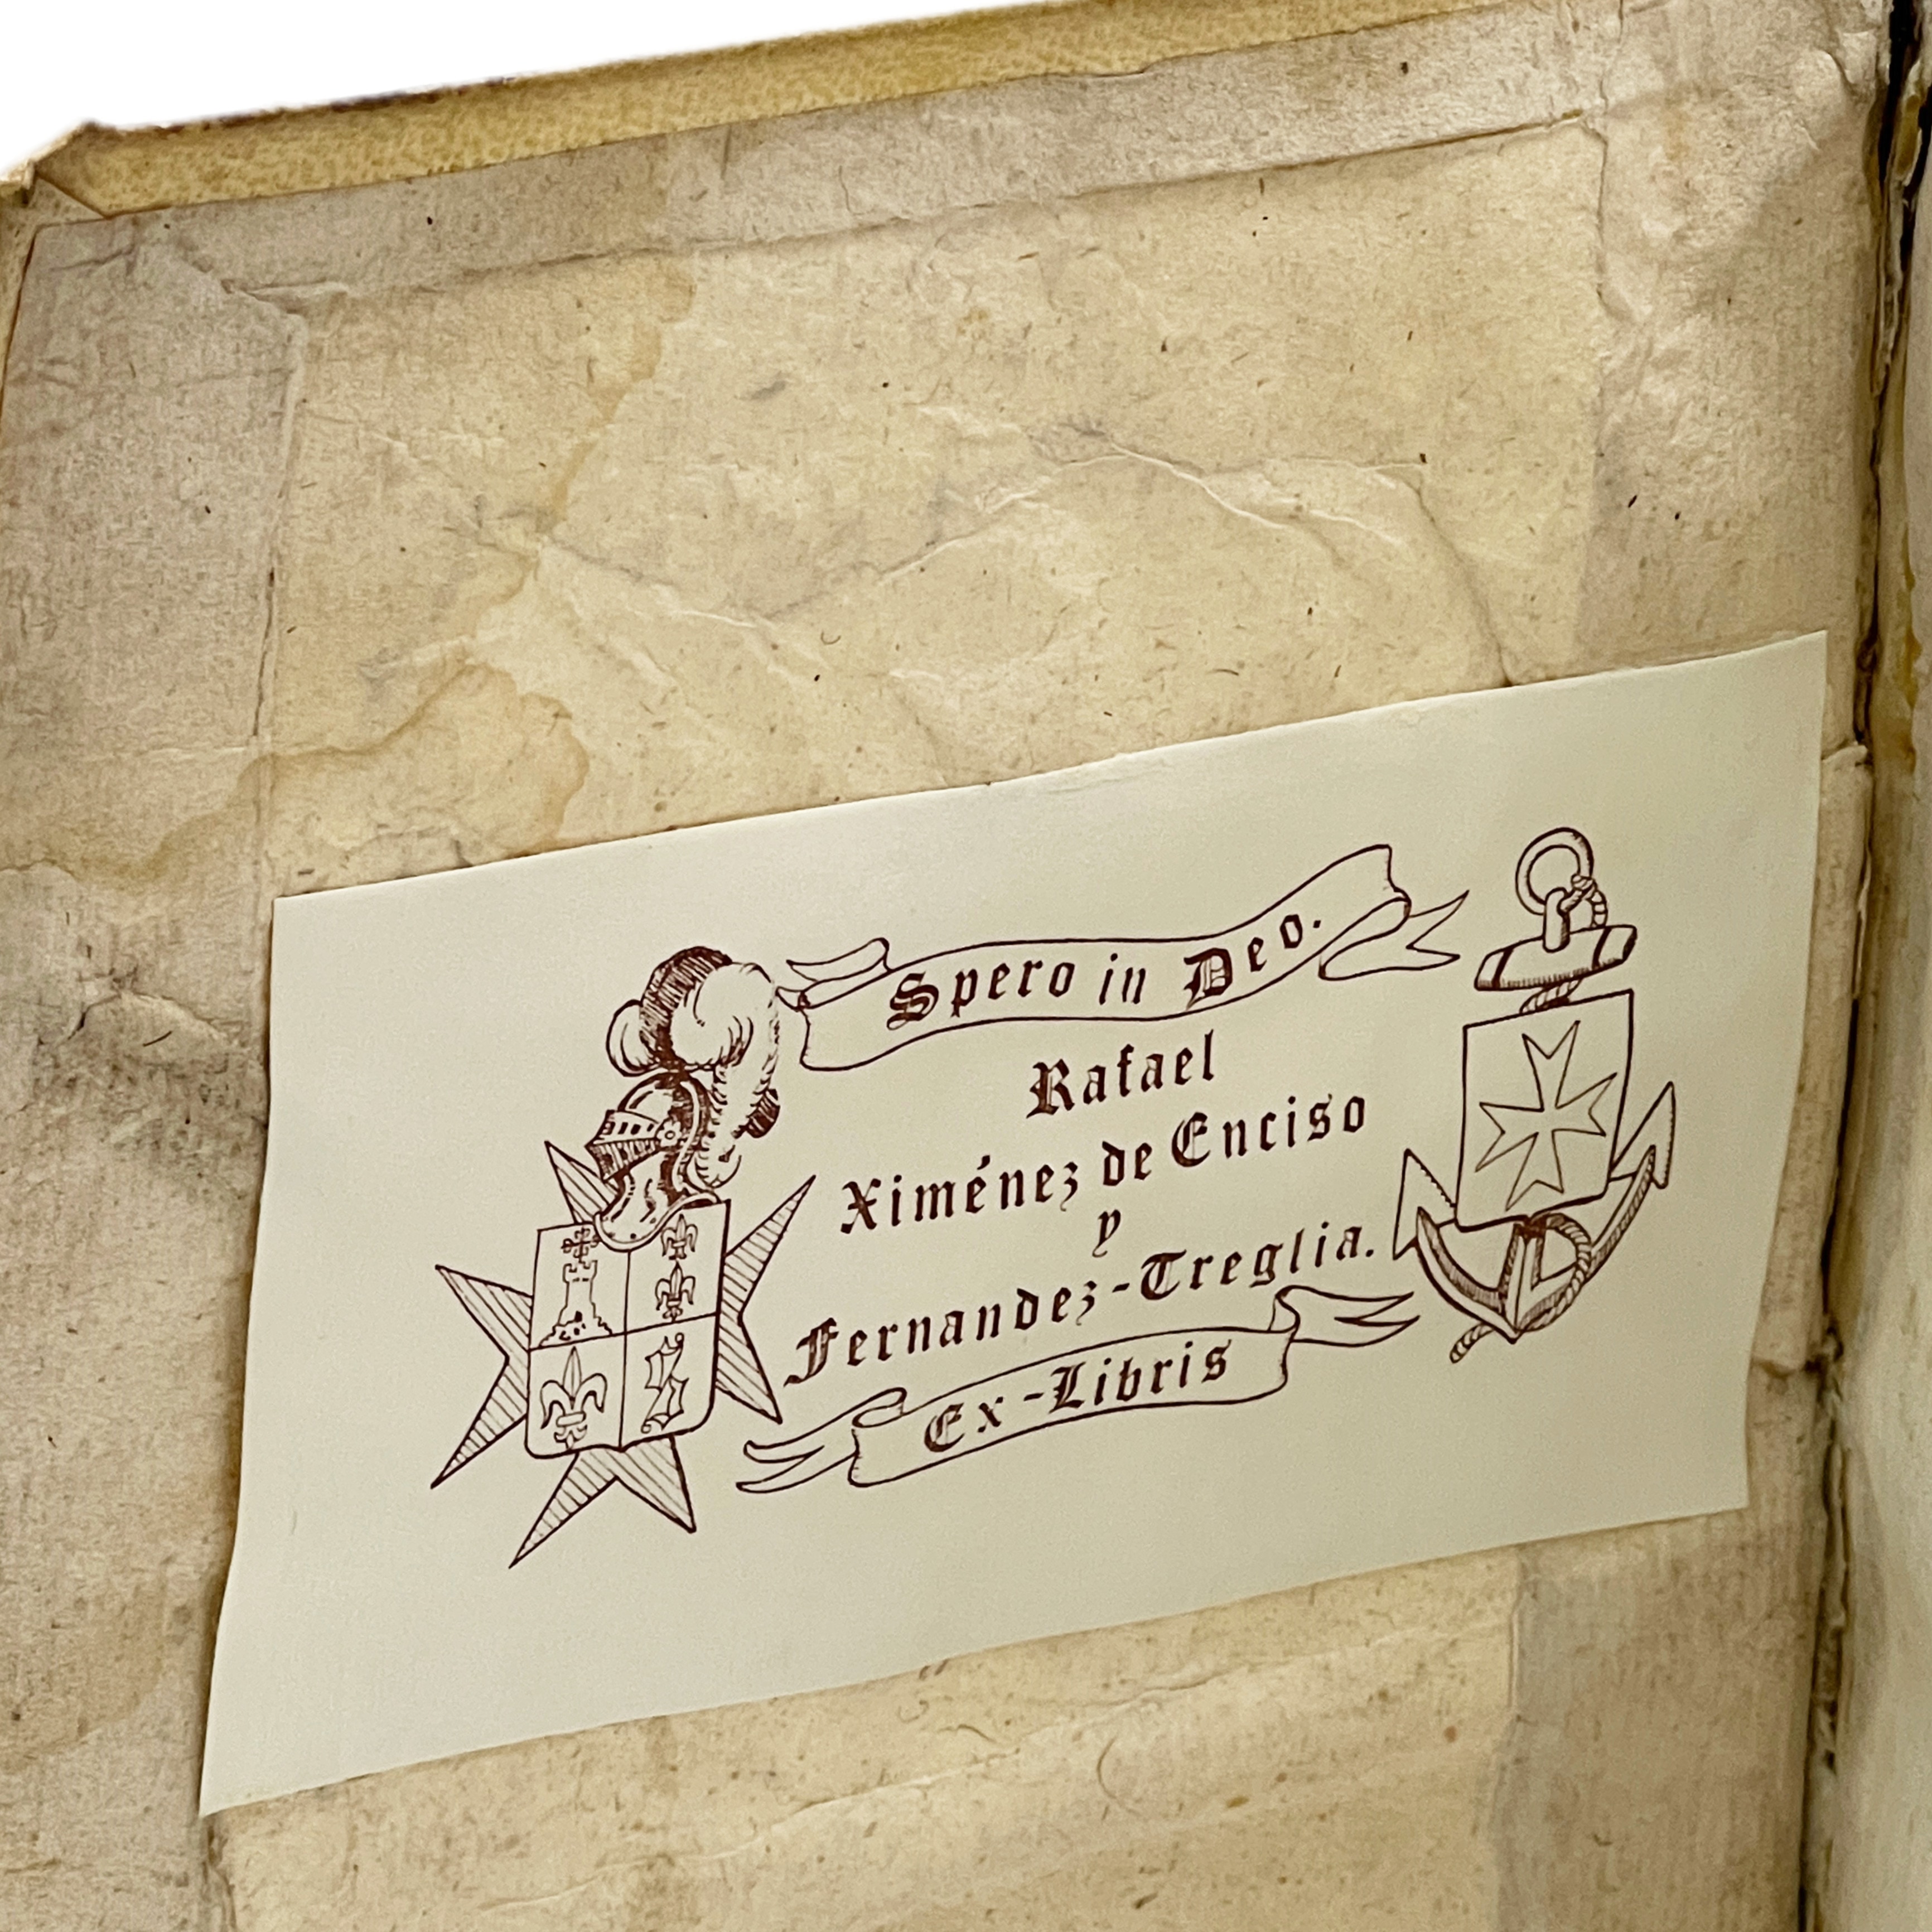 Spero in Deo.
Rafael
Ximénez de Enciso
y
Fernandez-Treglia.
Ex-Libris